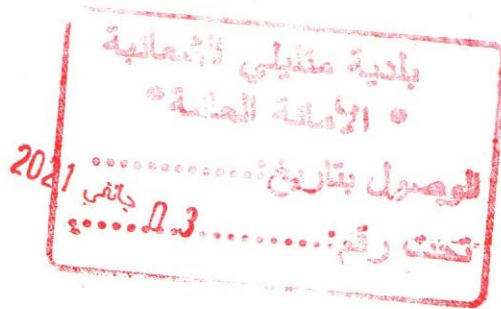 بلدية متليلي الشعانبة
* الأمانة العامة *
الوصول بتاريخ: .............. 2021
جانفي
تحت رقم: .........03......